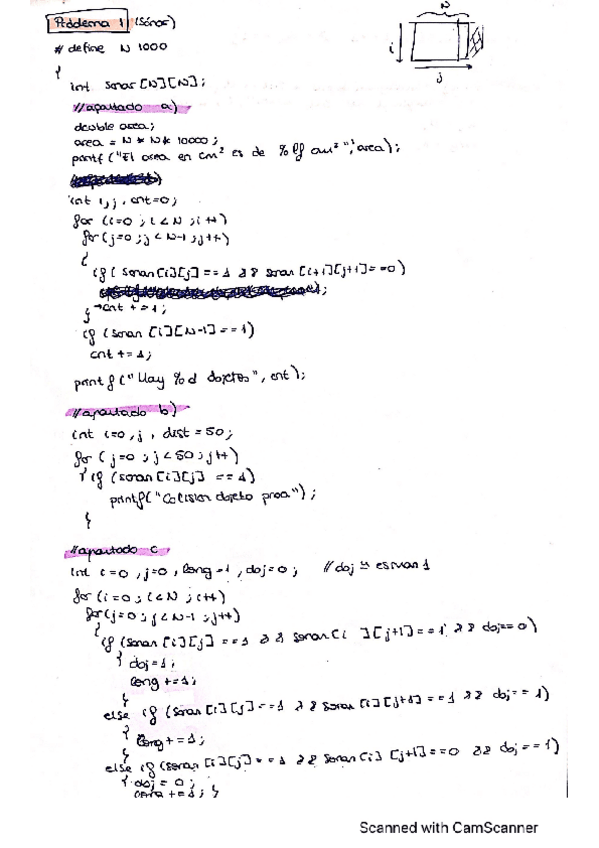 Problema 1 (Sónar)
N
i
j
# define N 1000
{
int sonar [N][N];
//apartado a)
double area;
area = N * N * 10000;
printf ("El area en cm² es de %lf cm²", area);
int i,j, cnt=0;
for (i=0; i<N; i++)
for (j=0; j<N-1; j++)
{
if ( sonar[i][j] == 1 && sonar [i+1][j+1]==0)
cnt += 1;
}
if (sonar [i][N-1]==1)
cnt += 1;
printf ("Hay %d objetos", cnt);
//apartado b)
int i=0, j, dist = 50;
for (j=0; j<50; j++)
{ if (sonar[i][j] == 1)
printf("Colision objeto proa");
}
//apartado c
int i=0, j=0, long=1, obj=0; //obj
for (i=0; i<N; i++)
for(j=0; j<N-1; j++)
{ if (sonar [i][j] ==1 && sonar[i][j+1]==1 && obj==0)
{ obj=1;
long +=1;
}
else if (sonar [i][j]==1 && sonar [i][j+1]==1 && obj==1)
{ long += 1;
}
else if (sonar [i][j]==1 && sonar[i][j+1]==0 && obj==1)
{ obj = 0;
+=1; }
Scanned with CamScanner